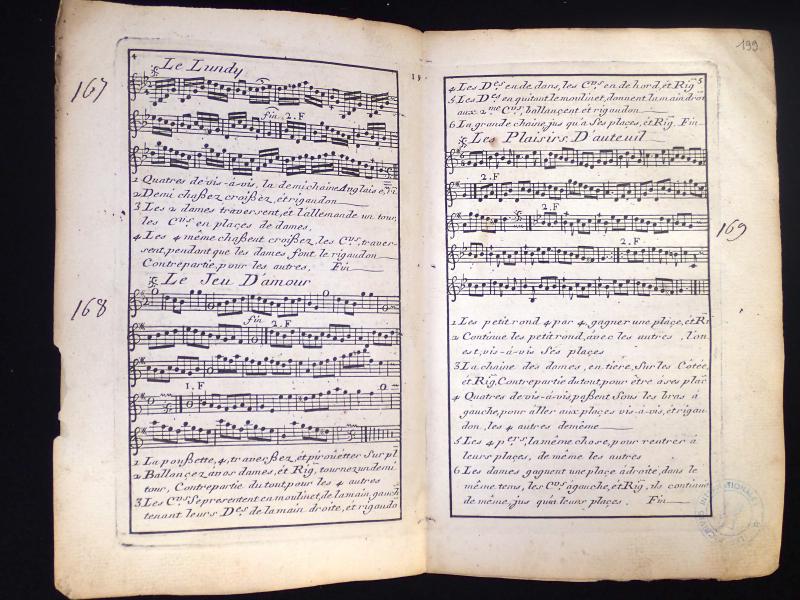 4
Le Lundy
167
fin 2. F
1 Quatres de vis-á-vis, la demi chaine Anglaise, et
2 Demi chaßez croißez, et rigaudon
3 Les 2 dames traversent, et l'allemande un tour,
les C.vs en plaçes de dames,
4 Les 4 même chaßent croißez, les C.vs, traver-
sent, pendant que les dames font le rigaudon
Contrepartie, pour les autres. Fin
Le Jeu D'amour
168
fin 2. F
1. F
1 La poußette, 4, traverßez, et piroüetter sur pl
2 Ballançez a vos dames, ét Rig, tournez un demi
tour, Contrepartie du tout, pour les 4 autres
3 Les C.vs Se presentent en moulinet, de la main, gauch
tenant leurs D.es de la main droite, et rigaudo
199
5
4 Les D.es en de, dans, les C.vs en de hord, ét Rig
5 Les D.es en quitant le moulinet, donnent la main droit
aux 2.me C.vs, ballançent et rigaudon
6 La grande chaine, jus qu'a Ses plaçes, ét Rig. Fin
Les Plaisirs D'auteuil
2. F
2. F
169
2. F
1 Les petit rond 4 par 4, gagner une plaçe, ét Ri
2 Continue les petit rond, avec les autres, l'on
est, vis-á-vis Sés plaçes
3 La chaine des dames, en tiere, Sur les Côtée,
ét Rig, Contrepartie du tout, pour étre à ses plac
4 Quatres de vis-á-vis, paßent Sous les bras á
gauche, pour aller aux plaçes vis-á-vis, ét rigau-
don, les 4 autres de même
5 Les 4 p.ers, la même chose, pour rentrer á
leurs plaçes, de même les autres
6 Les dames gagnent une plaçe á droite, dans le
même tems, les C.vs á gauche, ét Rig, ils continue
de même, jus qu'a leurs plaçes. Fin